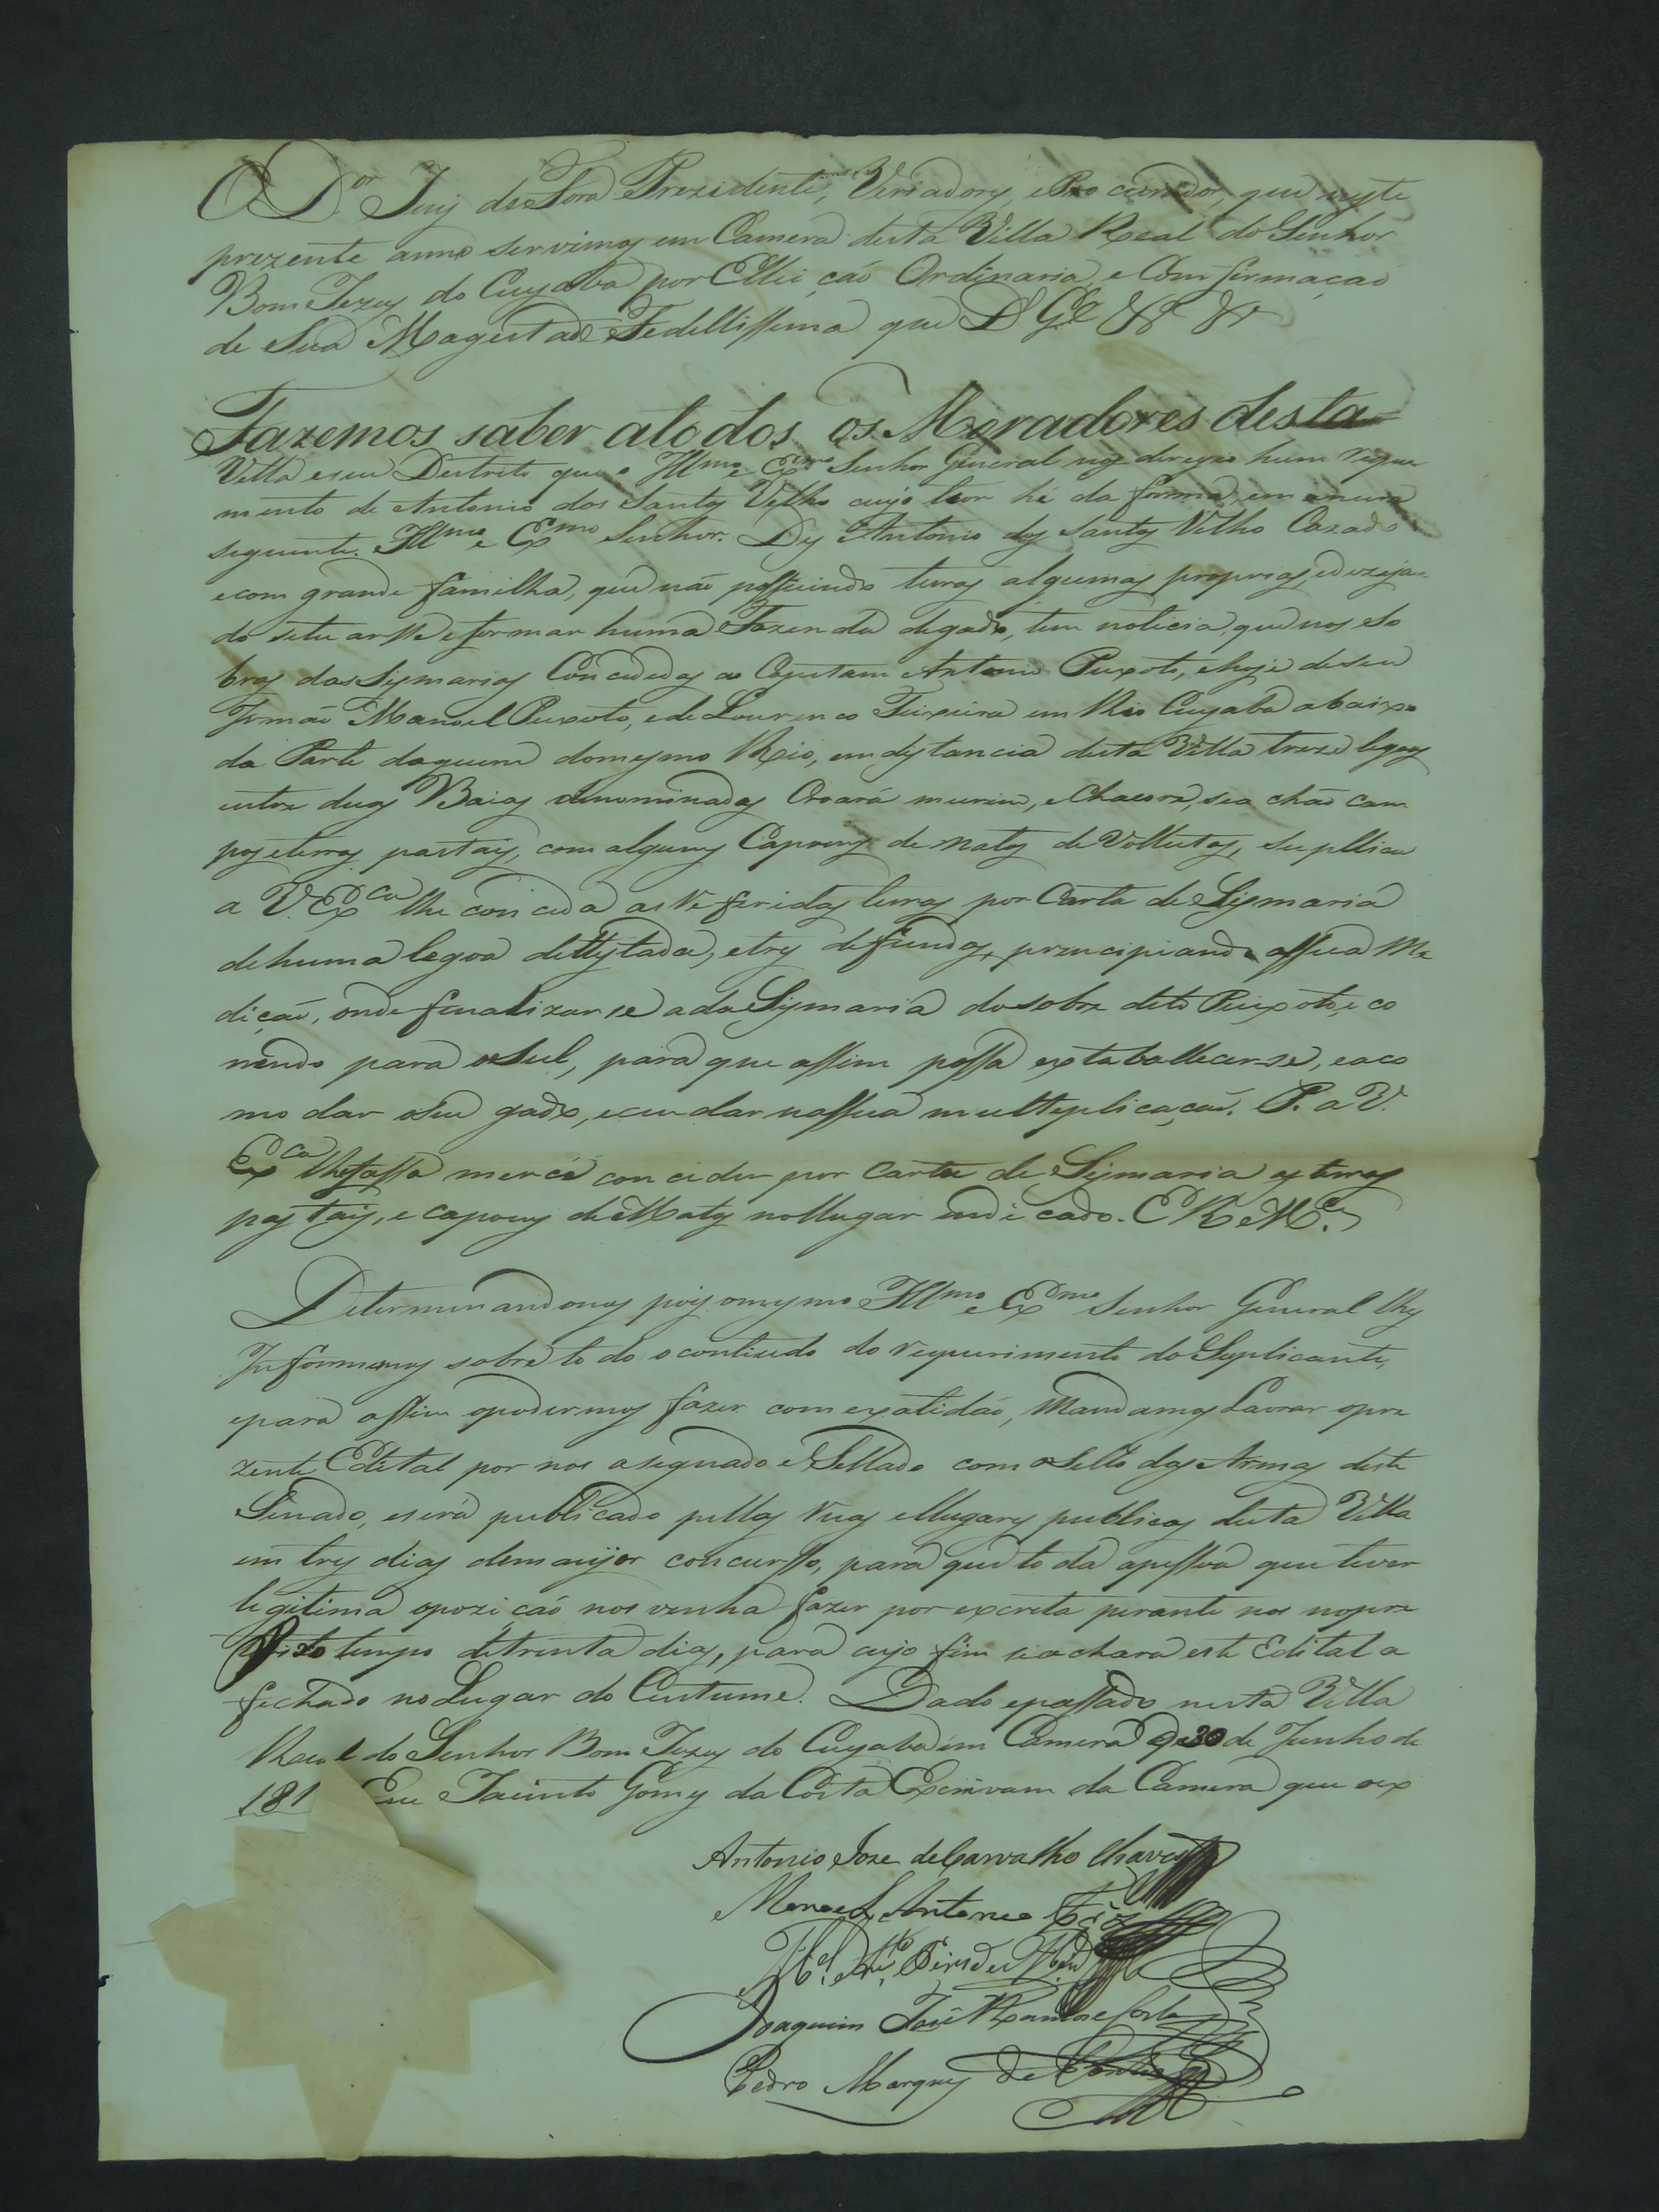 O D.or Juiz de Fora Prezidente, Veriadores, e Procurador, que neste
prezente anno servimos em Camera desta Villa Real do Senhor
Bom Jezus do Cuyaba por Elleição Ordinaria, e Comfermação
de Sua Magestade Fedellissima que D. G.e &.a &.a
Fazemos saber atodos os Moradores desta
Villa eseu Destrito que o Ill.mo e Ex.mo Senhor General nos deregio hum reque
mento de Antonio dos Santos Velho cujo teor hé da forma, emaneira
seguente. Ill.mo e Ex.mo Senhor. Dis Antonio dos Santos Velho Cazado
ecom grande familha, que não possuindo terras algumas proprias, edezejan
do setuarsse eformar huma Fazenda degado, tem noticia, que nos so
bras das Sismarias Concedidas ao Capitam Antonio Peixoto, ehoje deseu
Irmão Manoel Peixoto, ede Lourenco Teixeira em Rio Cuyaba abaixo
da Parte daquem domesmo Rio, em distancia desta Villa treze legoas
entre duas Baias denominadas Croará meurim, e Chacoré, se achão cam
pos eterras pastais, com alguns Capoens de matos de Vollutos, supllica
a V. Ex.ca lhe conceda as referidas terras por Carta de Sismaria
dehuma legoa dettestada, etres defundos, principiando assua Me
dição, onde fenalizarse ada Sismaria do sobre dito Peixoto, e co
rrendo para oSul, para que assim possa extaballecer-se, eaco
modar oseu gado, ecuidar nassua multeplicação. P. a V.
Ex.ca lhefassa mercê conceder por Carta de Sismaria as terras
pastais, e capoens de Matos nollugar endicado. E R M.ce
Determinandonos pois omesmo Ill.mo e Ex.mo Senhor General lhe
Informemos sobre todo ocontiudo do requerimento do Suplicante,
epara assim opodermos fazer com exatidão, Mandamos Lavrar opre
zente Edital por nos asegnado e Sellado com oSello das Armas deste
Senado, eserá publicado pellas ruas ellugares publicos desta Villa
em tres dias demaijor concursso, para que toda apessoa que tever
legitima opozição nos venha fazer por excreta perante nos nopre
fixo tempo detrinta dias, para cujo fim se achara este Edital a
fechado no Lugar do Custume. Dado epassado nesta Villa
Real do Senhor Bom Jezus do Cuyaba em Camera de 30 de Junho de
181 Eu Jacinto Gomes da Costa Escrivam da Camera que o ex
Antonio Joze de Carvalho Chaves
Manoel Antonio
Joaquim José Ramos e Costa
Pedro Marques de